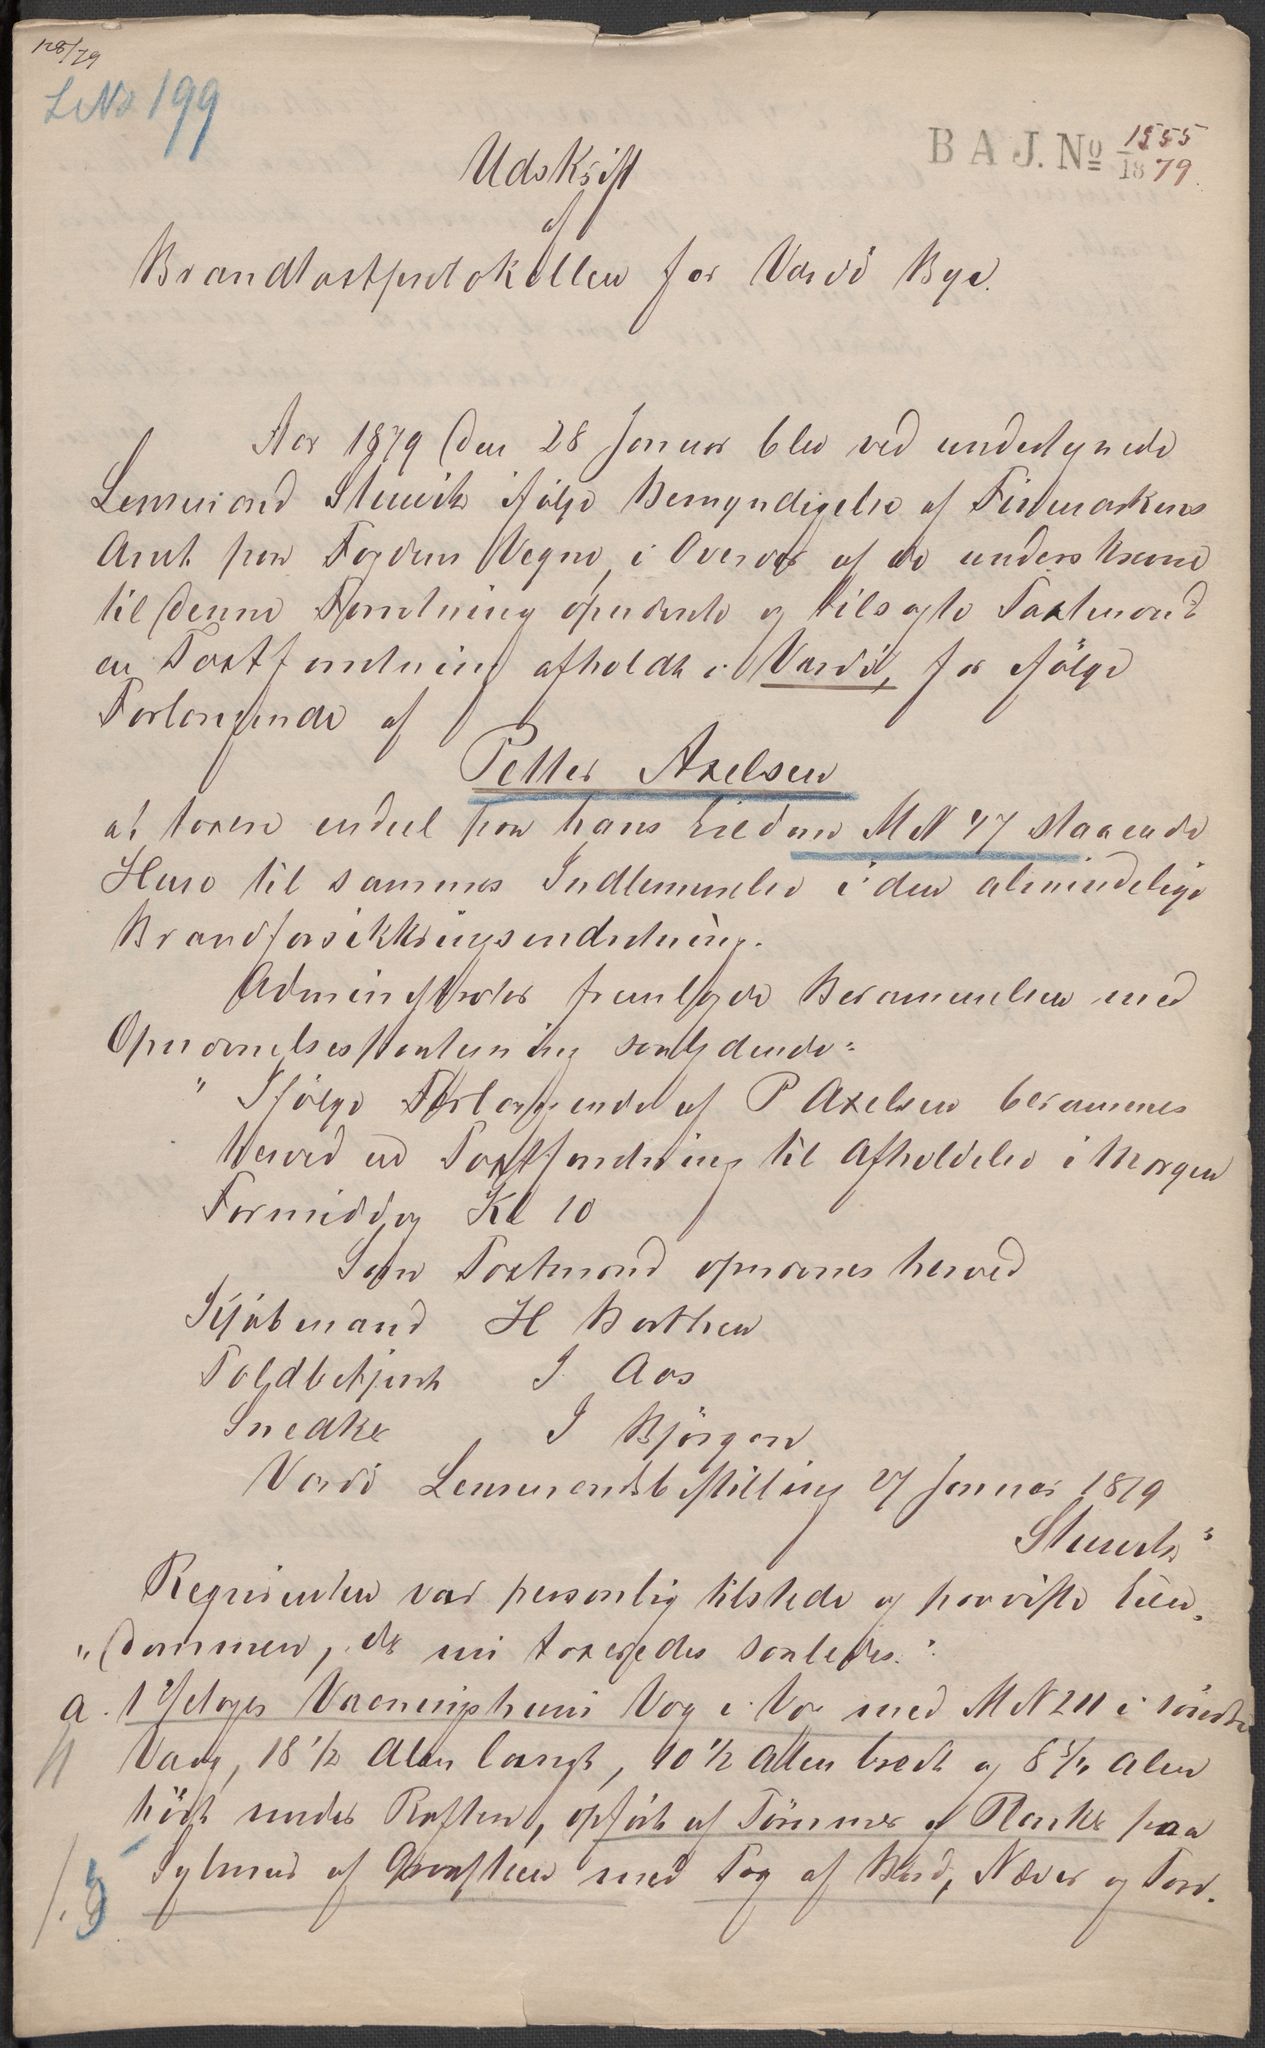 128/79
L No 199
B A J. No 1555/1879
Udskrift
af
Brandtaxtprotokollen for Vardö Bye.
Aar 1879 den 28 Januar blev ved undertegnede
Lensmand Stuwitz ifølge Bemyndigelse af Finmarkens
Amt paa Fogdens Vegne, i Overvær af de underskrevne
til denne Forretning opnævnte og tilsagte Taxtmænd
en Taxtforretning afholdt i Vardö, for ifölge
Forlangende af
Petter Axelsen
at taxere endeel paa hans Eiedom M N 47 staaende
Huse til sammes Indlemmelse i den almindelige
Brandforsikkringsindretning.
Administrator fremlagde Berammelsen med
Opnævnelsespaategning saalydende:
" Ifölge Forlangende af P Axelsen berammes
herved en Taxtforretning til Afholdelse i Morgen
Formiddag Kl 10
Som Taxtmænd opnævnes herved
Kjöbmand H Barthen
Toldbetjent J. Aas
Snedker J Björgan
Vardö Lensmandsbestilling 27 Januar 1879
Stuwitz"
Requirenten var personlig tilstede og paaviste Eien-
"dommen, der nu taxeredes saaledes:
a. 1 Etages Vaaningshuus Væg i Væg med M N 211 i söndre
Vaag, 18 1/2 Alen langt, 10 1/2 Alen bredt og 8 3/4 Alen
höit under Raften, opført af Tömmer og Planker paa
Sylmuur af Graasteen med Tag af Bord, Næver og Torv.